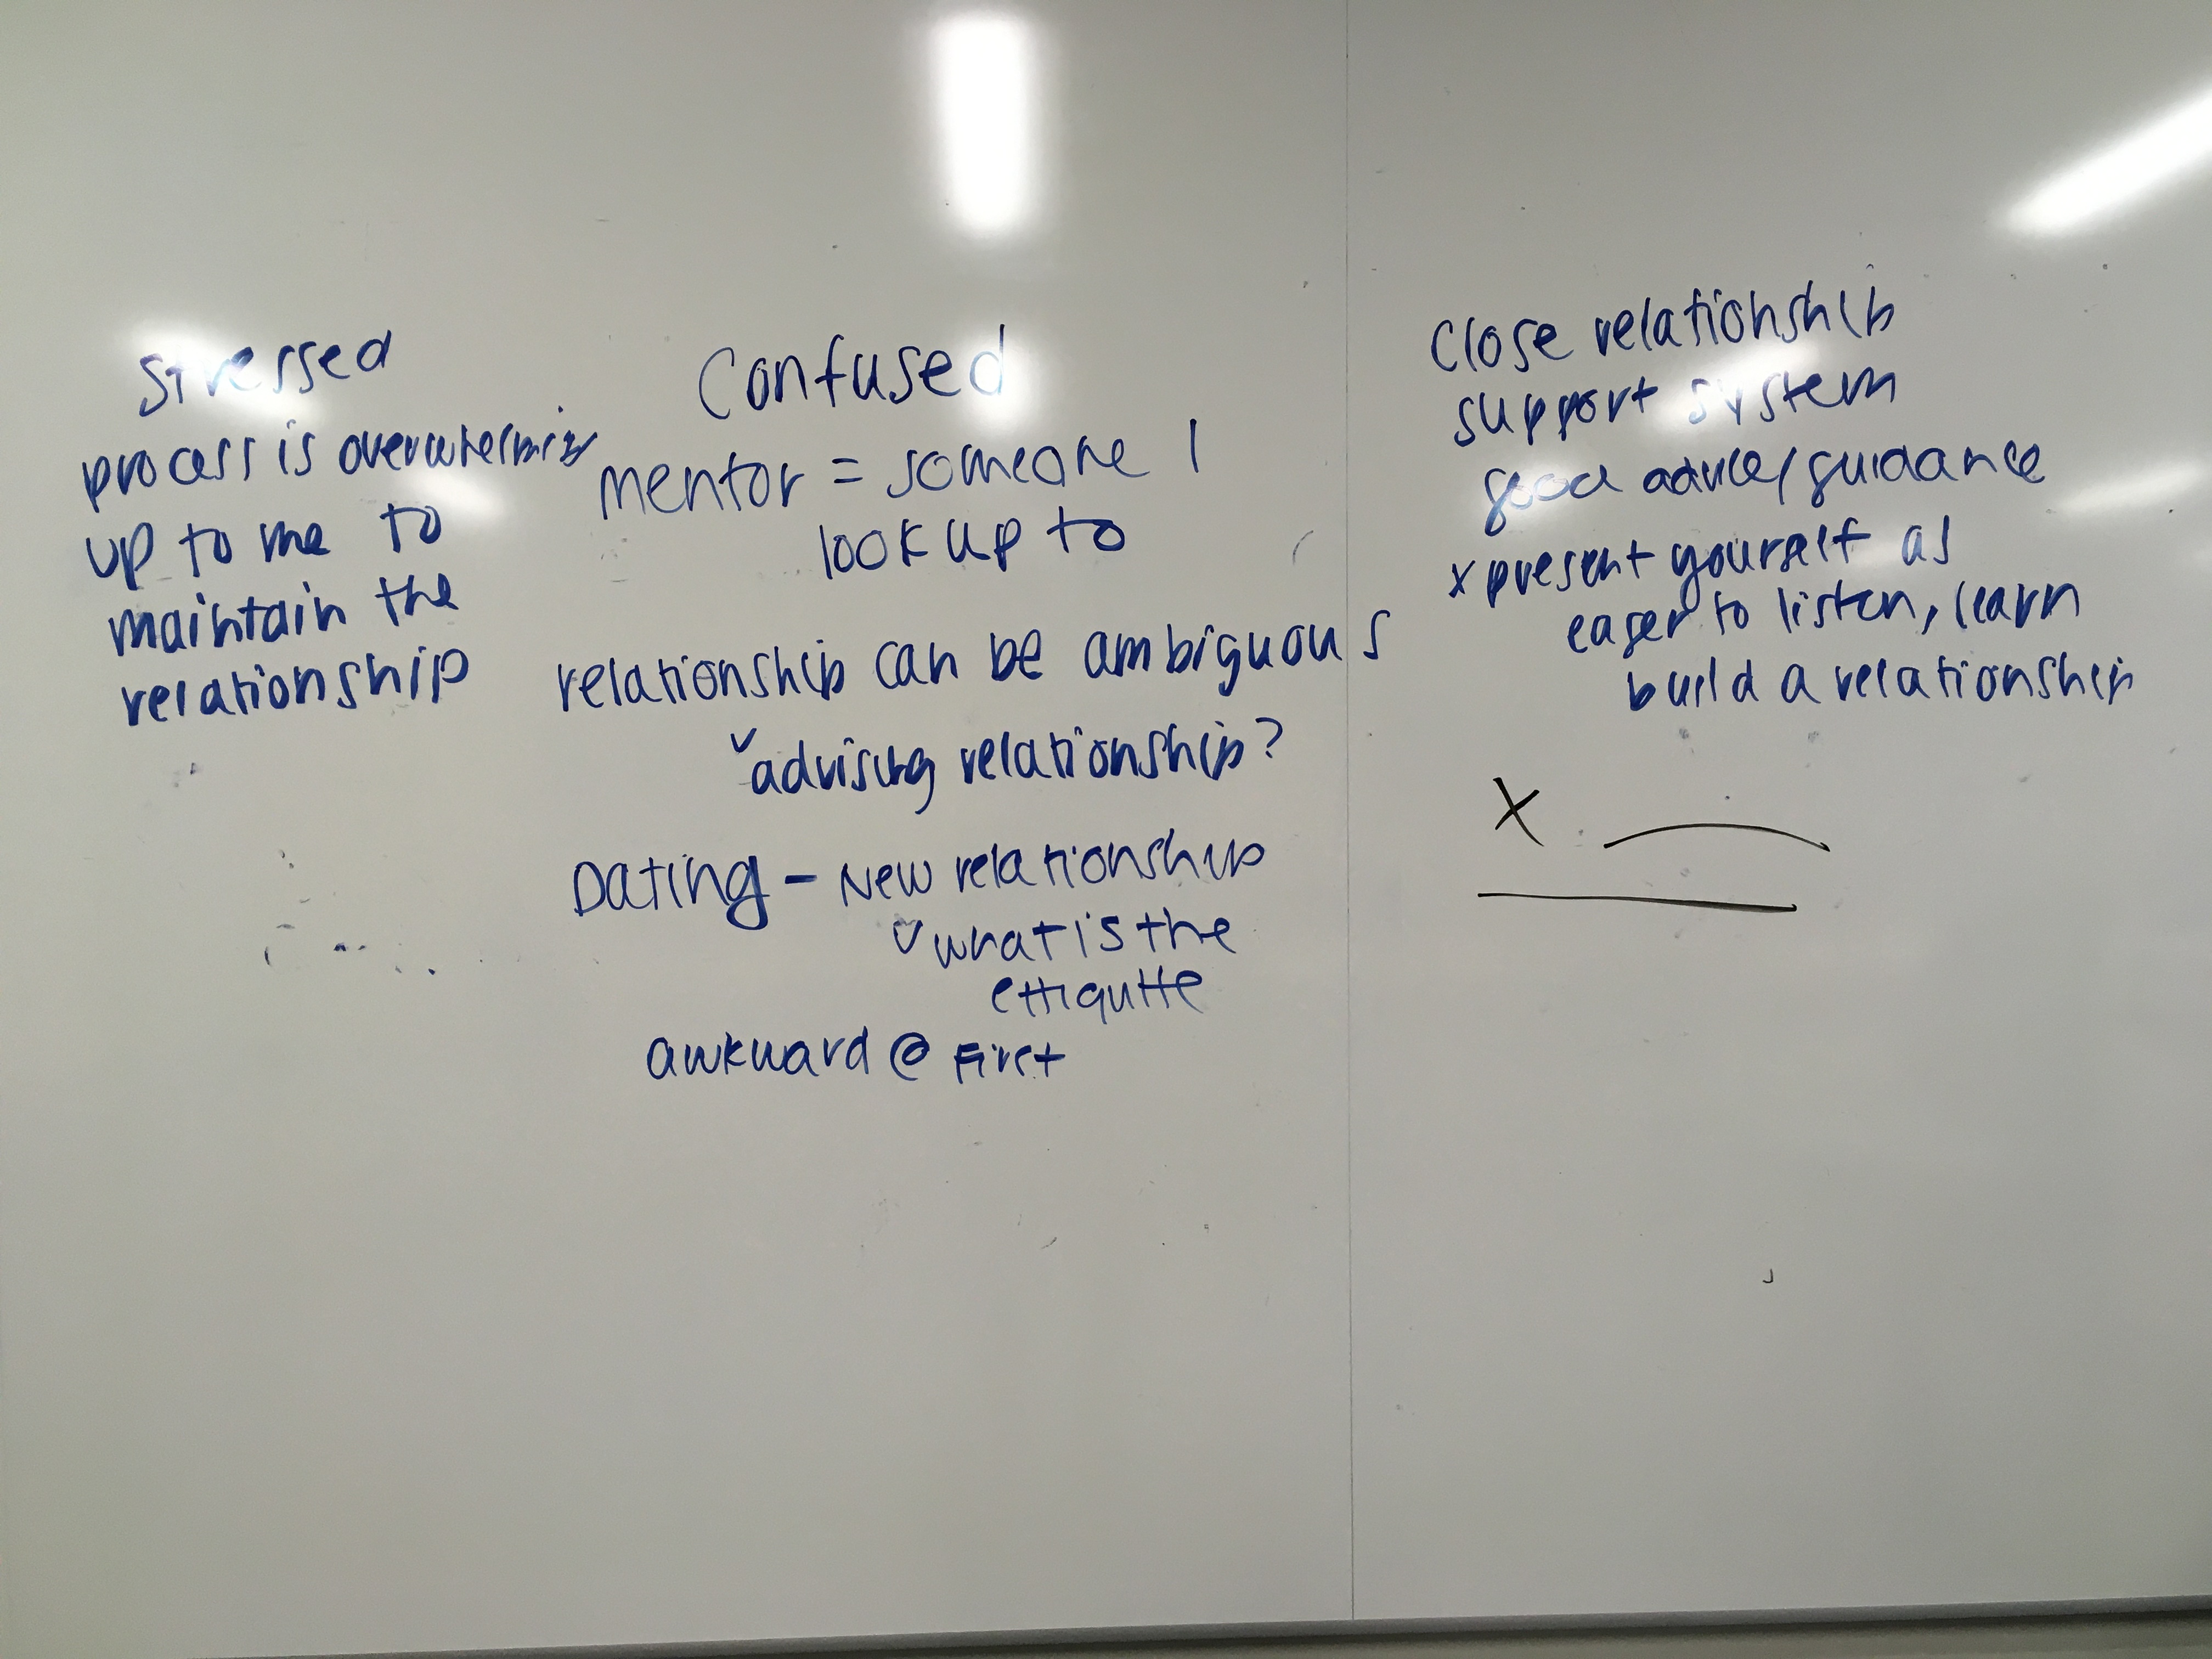 Stressed
process is overwhelming
up to me to
maintain the
relationship
Confused
mentor = someone I
look up to
relationship can be ambiguous
advising relationship?
Dating - New relationship
what is the
ettiqutte
awkward @ First
Close relationship
support system
good advice/guidance
x present yourself as
eager to listen, learn
build a relationship
X